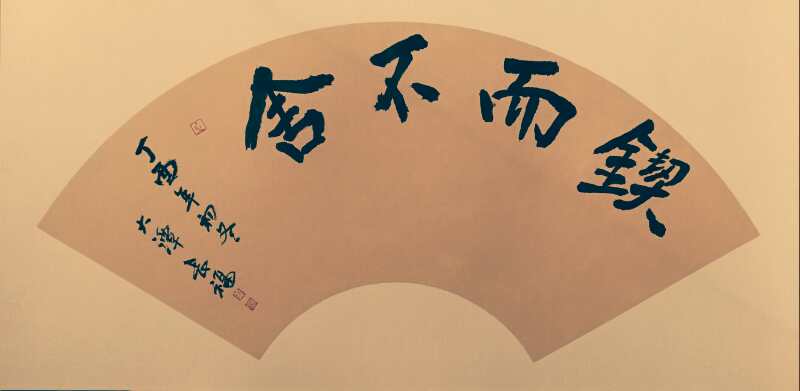 鍥而不舍
丁酉年初冬
大潭長福